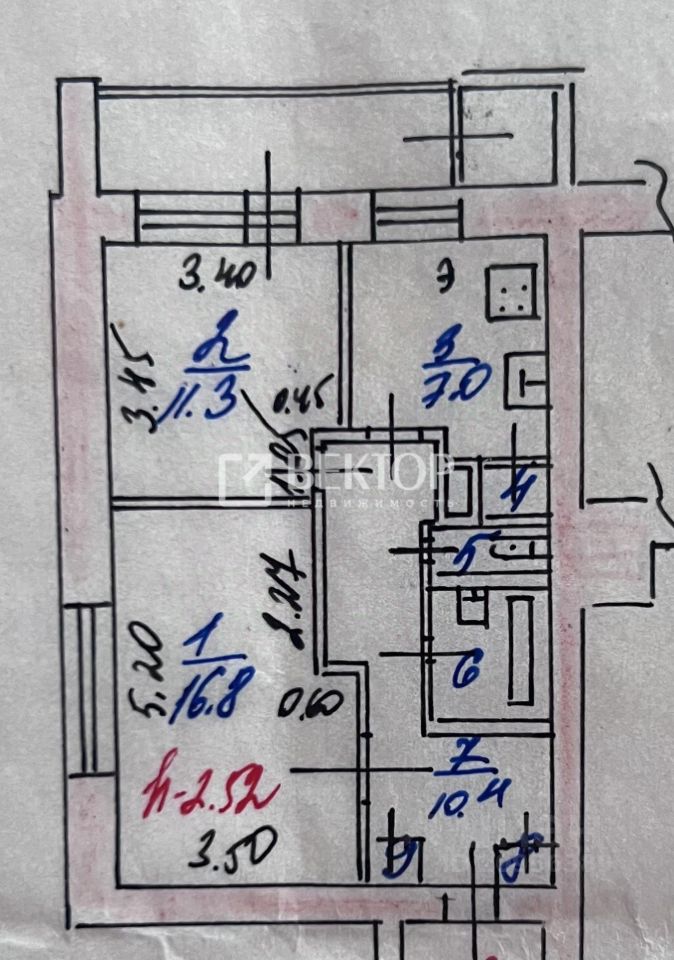 3.40
Э
2
11.3
3.45
0.45
3
7.0
ВЕКТОР
НЕДВИЖИМОСТЬ
4
5
2.27
5.20
1
16.8
0.60
6
h-2.52
7
10.4
3.50
9
8